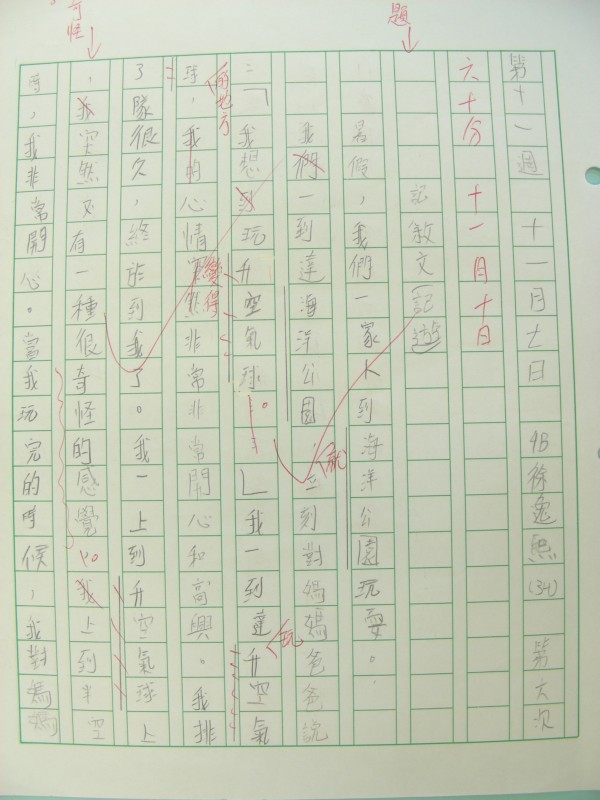 奇怪
題
第十一週 十一月七日 4B 徐逸熙(34) 第六次
六十分 十一月十日
記敘文(記遊)
暑假,我們一家人到海洋公園玩耍。
我們一到達海洋公園,立刻對媽媽爸爸說
:「我想到玩升空氣球。」我一到達升空氣
玩
就
球,我的心情非常非常開心和高興。我排
的地方
變得
了隊很久,終於到我了。我一上到升空氣球上
,我突然又有一種很奇怪的感覺。我上到半空
時,我非常開心。當我玩完的時候,我對媽媽